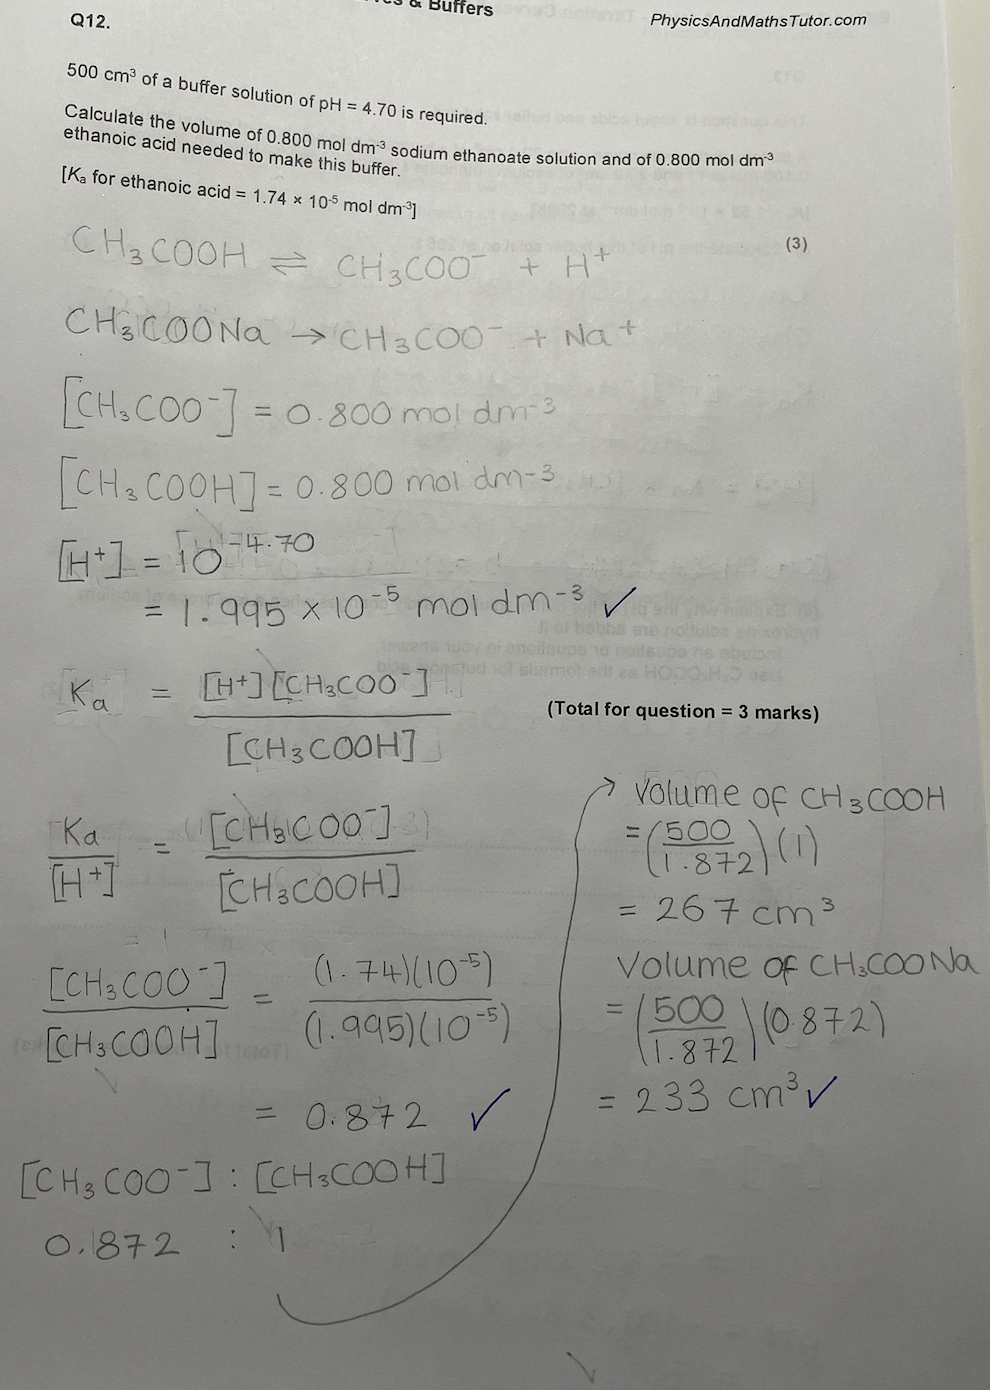 & Buffers
Q12.
PhysicsAndMathsTutor.com
500 cm³ of a buffer solution of pH = 4.70 is required.
Calculate the volume of 0.800 mol dm⁻³ sodium ethanoate solution and of 0.800 mol dm⁻³
ethanoic acid needed to make this buffer.
[Kₐ for ethanoic acid = 1.74 × 10⁻⁵ mol dm⁻³]
(3)
CH₃COOH ⇌ CH₃COO⁻ + H⁺
CH₃COONa → CH₃COO⁻ + Na⁺
[CH₃COO⁻] = 0.800 mol dm⁻³
[CH₃COOH] = 0.800 mol dm⁻³
[H⁺] = 10⁻⁴·⁷⁰
= 1.995 × 10⁻⁵ mol dm⁻³ ✓
Kₐ = [H⁺][CH₃COO⁻]
[CH₃COOH]
(Total for question = 3 marks)
Kₐ = [CH₃COO⁻]
[H⁺] [CH₃COOH]
[CH₃COO⁻] = (1.74)(10⁻⁵)
[CH₃COOH] (1.995)(10⁻⁵)
= 0.872 ✓
[CH₃COO⁻] : [CH₃COOH]
0.872 : 1
Volume of CH₃COOH
= (500/1.872)(1)
= 267 cm³
Volume of CH₃COONa
= (500/1.872)(0.872)
= 233 cm³ ✓